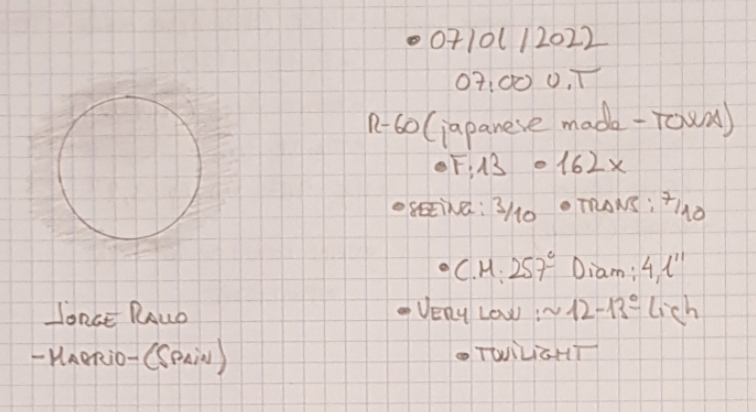 • 07/01/2022
07:00 U.T
R-60 (japanese made - TOWA)
• F:13 • 162x
• SEEING: 3/10 • TRANS: 7/10
• C.M: 257° Diam: 4,1"
• VERY LOW: ~12-13° high
• TWILIGHT
JORGE
-MADRID-(SPAIN)